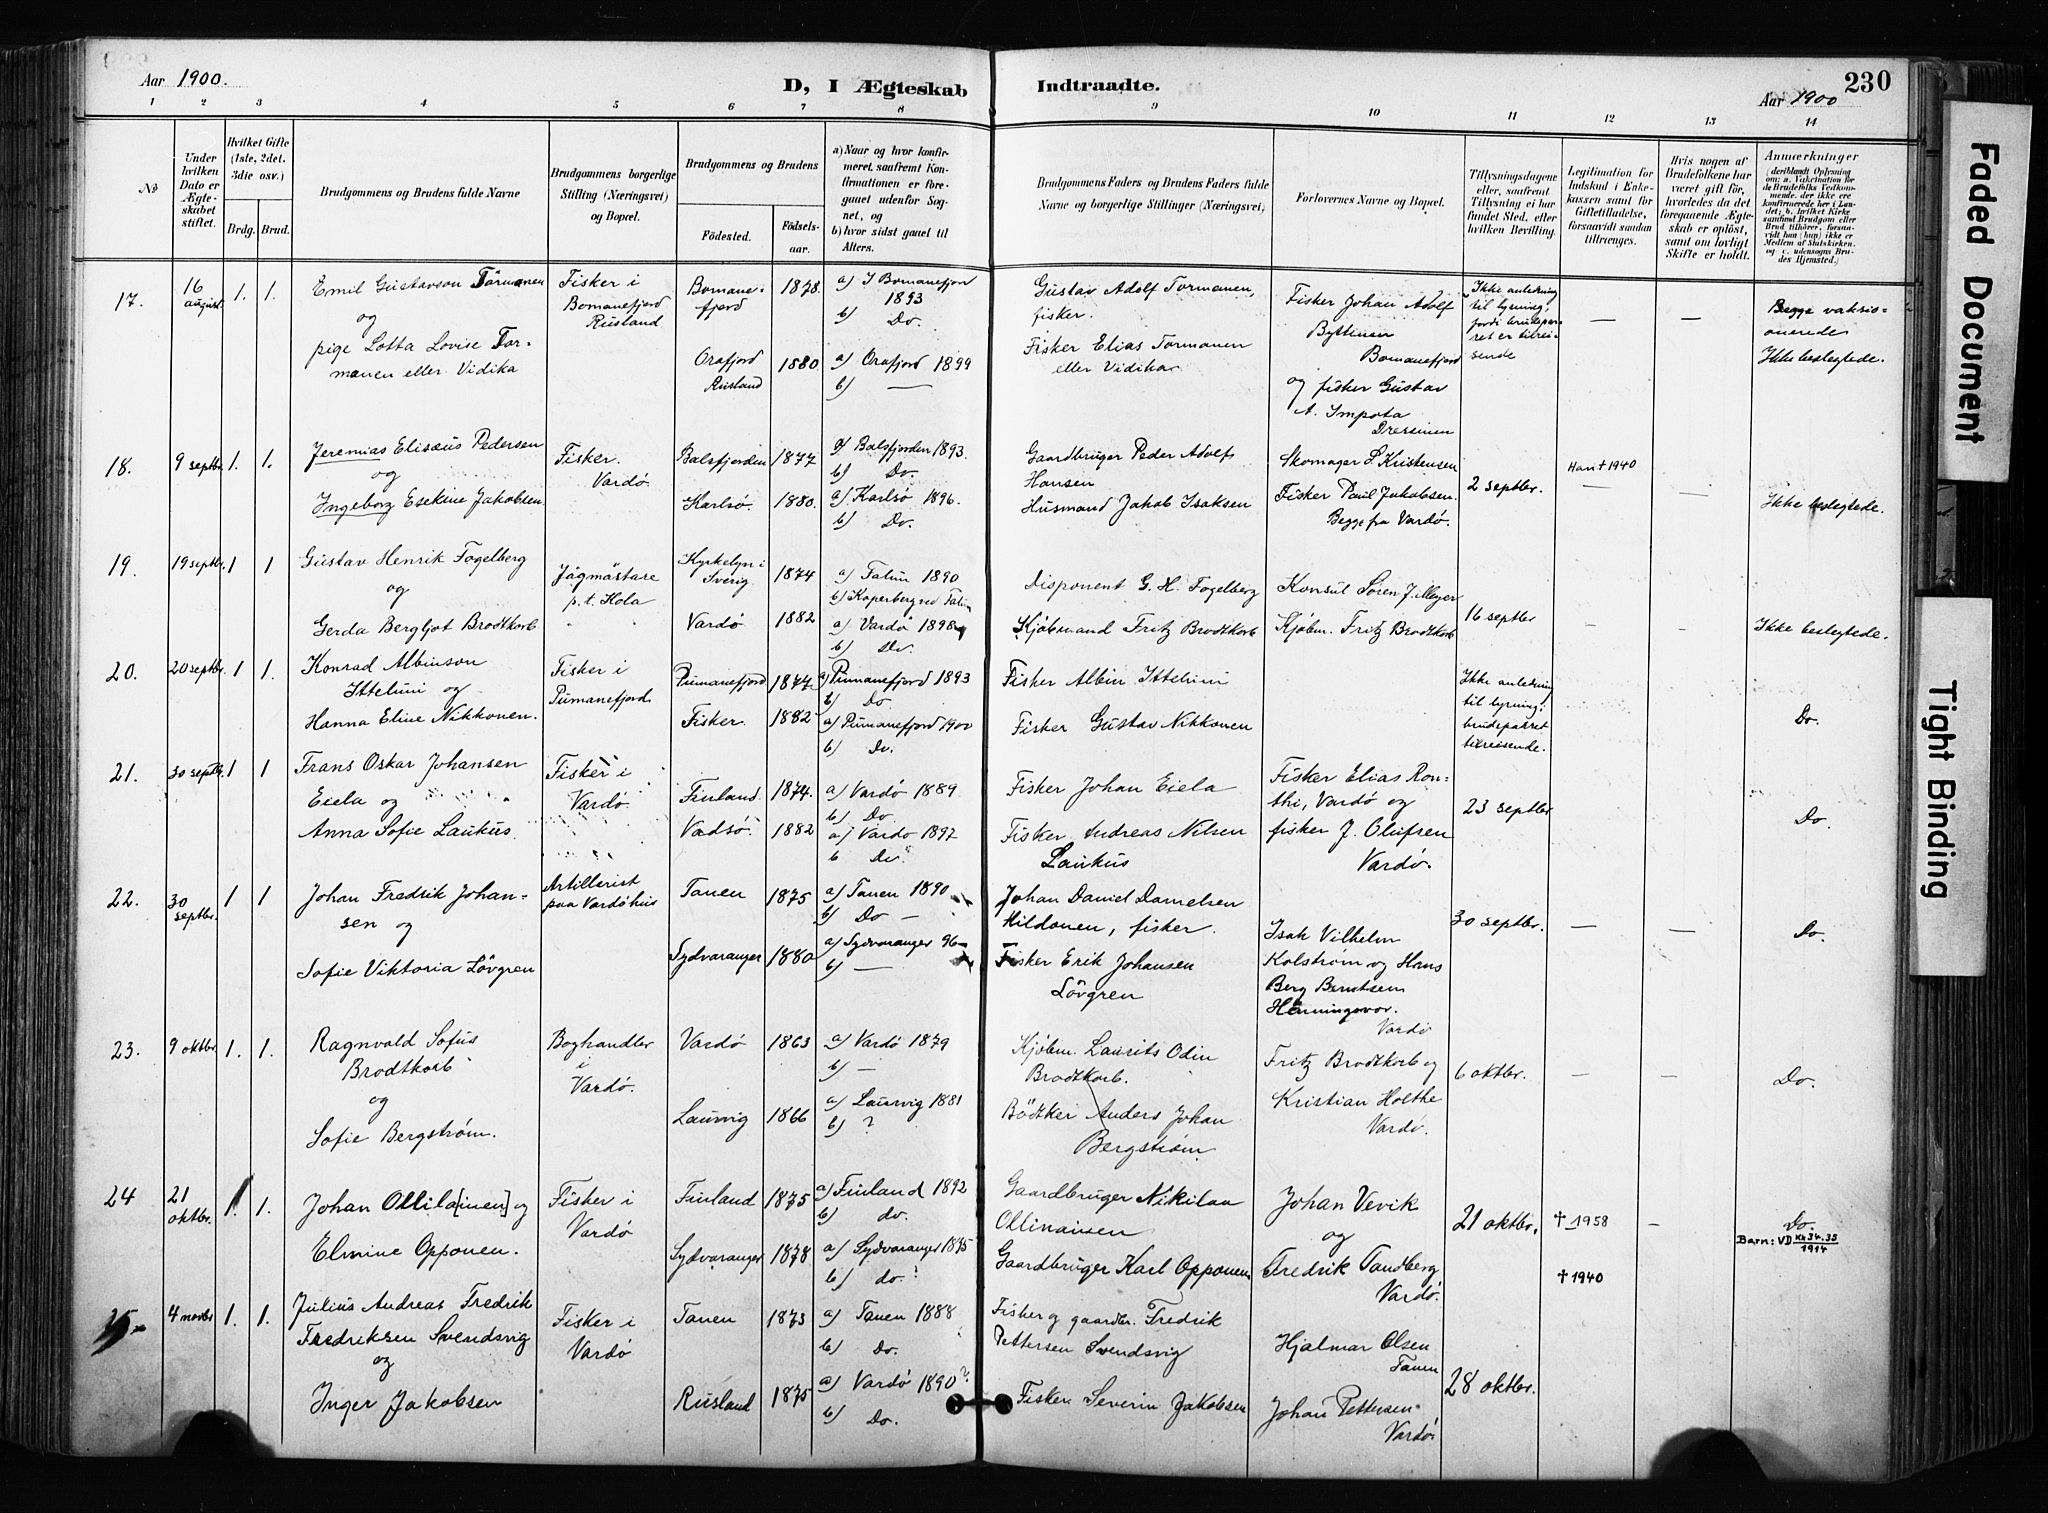 Aar 1900.
D, I Ægteskab
Indtraadte.
230
Aar 1900
1 2 3 4 5 6 7 8
9 10 11 12 13 14
No
Under
hvilken
Dato er
Ægte-
skabet
stiftet.
Hvilket Gifte
(1ste, 2det.
3die osv.)
Brdg. Brud.
Brudgommens og Brudens fulde Navne
Brudgommens borgerlige
Stilling (Næringsvei)
og Bopæl.
Brudgommens og Brudens
Födested.
Födsels-
aar.
a) Naar og hvor konfir-
meret, saafremt Kon-
firmationen er fore-
gaaet udenfor Sog-
net, og
b) hvor sidst gaaet til
Alters.
Brudgommens Faders og Brudens Faders fulde
Navne og borgerlige Stillinger (Næringsvei)
Forlovernes Navne og Bopæl.
Tillysningsdagene
eller, saafremt
Tillysning ei har
fundet Sted, efter
hvilken Bevilling.
Legitimation for
Indskud i Enke-
kassen samt for
Giftetilladelse,
forsaavidt saadan
tiltrænges.
Hvis nogen af
Brudefolkene har
været gift för,
hvorledes da det
foregaaende Ægte-
skab er oplöst,
samt om lovligt
Skifte er holdt.
Anmærkninger
(deriblandt Oplysning
om: a. Vakcination for
de Brudefolks Vedkom-
mende, der ikke ere
konfirmerede her i Lan-
det; b. hvilket Kirke-
samfund Brudgom eller
Brud tilhörer, forsaa-
vidt han (hun) ikke er
Medlem af Statskirken,
og c. udensogns Bru-
des Hjemsted.)
17. 16 august. 1. 1.
Emil Gustavson Törmanen
og
pige Lotta Lovise Tor-
manen eller Vidika
Fisker i
Bomanefjord
Rusland
Bomane-
fjord
1878.
a) I Bomanefjor
1893
b) Do.
Orafjord
Rusland
1880.
a) Orafjord 1899
b) —
Gustav Adolf Tormanen,
fisker.
Fisker Elias Tormanen
eller Vidika
Fisker Johan Adolf
Byttinen
Bomanefjord
og fisker Gustav
A. Impota
Dressinen
Ikke anledning
til lysning,
fordi brudepa-
ret er tilrei-
sende
— —
Begge vaksio-
nerede
Ikke beslegtede.
18. 9 septbr. 1. 1.
Jeremias Elisæus Pedersen
og
Ingeborg Esekine Jakobsen
Fisker.
Vardø
Balsfjorden 1877
a) Balsfjorden 1893.
b) Do.
Karlsø. 1880.
a) Karlsø 1896.
b) Do.
Gaardbruger Peder Adolfs
Hansen
Husmand Jakob Isaksen
Skomager S. Kristensen
Fisker Paul Jakobsen.
Begge fra Vardø.
2 septbr.
Han † 1940
— —
Ikke beslegtede.
19. 19 septbr. 1 1
Gustav Henrik Fogelberg
og
Gerda Bergljot Brodtkorb
Jägmästare
p.t. Kola
Kyrkebyn i
Sverig
1874
a) Falun 1890
b) Koperberg ved Falun
Vardø 1882
a) Vardø 1898
b) Do.
Disponent G. H. Fogelberg
Kjøbmand Fritz Brodtkorb
Konsul Søren J. Meyer
Kjøbm. Fritz Brodtkorb
16 septbr
— —
Ikke beslegtede.
20. 20 septbr. 1 1.
Konrad Albinson
Ittelini og
Hanna Eline Nikkonen.
Fisker i
Pumanefjord
Pumanefjord 1877
a) Pumanefjord 1893
b) Do
Fisker. 1882
a) Pumanefjord 1900
b) Do.
Fisker Albin Ittelini
Fisker Gustav Nikkonen
Ikke anledning
til lysning;
brudeparret
tilreisende.
Do.
21. 30 septbr. 1 1
Frans Oskar Johansen
Eiela og
Anna Sofie Laukus.
Fisker i
Vardø.
Finland. 1874.
a) Vardø 1889.
b) Do
Vadsø. 1882
a) Vardø 1897
b Do
Fisker Johan Eiela
Fisker Andreas Nilsen
Laukus
Fisker Elias Ron-
thi, Vardø og
fisker J. Olufsen
Vardø.
23 septbr
Do.
22. 30 septbr. 1 1
Johan Fredrik Johan-
sen og
Sofie Viktoria Lövgren
Artillerist
paa Vardøhus
Tanen 1875
a) Tanen 1890
b) Do —
Sydvaranger 1880
a) Sydvaranger 96
b) —
Johan Daniel Danielsen
Hildonen, fisker.
Fisker Erik Johansen
Lövgren
Isak Vilhelm
Kolstrøm og Hans
Berg Berntsen
Henningsvor.
Vardø
30 septbr.
— —
Do.
23. 9 oktbr. 1. 1.
Ragnvald Sofus
Brodtkorb
og
Sofie Bergstrøm.
Boghandler
i
Vardø.
Vardø 1863
a) Vardø 1879
b) —
Laurvig 1866
a) Laurvig 1881
b) ?
Kjøbm. Laurits Odin
Brodtkorb.
Bödtker Anders Johan
Bergstrøm.
Fritz Brodtkorb og
Kristian Holthe
Vardø.
6 oktbr.
— —
Do.
24 21 oktbr. 1. 1.
Johan Ollila[inen] og
Elmine Opponen.
Fisker i
Vardø
Finland 1875
a) Finland 1892
b) do.
Sydvaranger 1878
a) Sydvaranger 1875
b) do?
Gaardbruger Nikilaa
Ollinainen
Gaardbruger Karl Opponen
Johan Vevik
og
Fredrik Tandberg
Vardø.
21 oktbr.
† 1958
† 1940
—
Do.
Barn: VD Kh 34.35
1914
25 4 novbr 1. 1.
Julius Andreas Fredrik
Fredriksen Svendsvig
og
Inger Jakobsen
Fisker i
Vardø
Tanen 1873
a) Tanen 1888
b) Do.
Rusland 1875
a) Vardø 1890?
b) Do.
Fisker og gaardbr. Fredrik
Pettersen Svendsvig
Fisker Severin Jakobsen
Hjalmar Olsen
Tanen
Johan Pettersen
Vardø.
28 oktbr.
Faded Document
Tight Binding